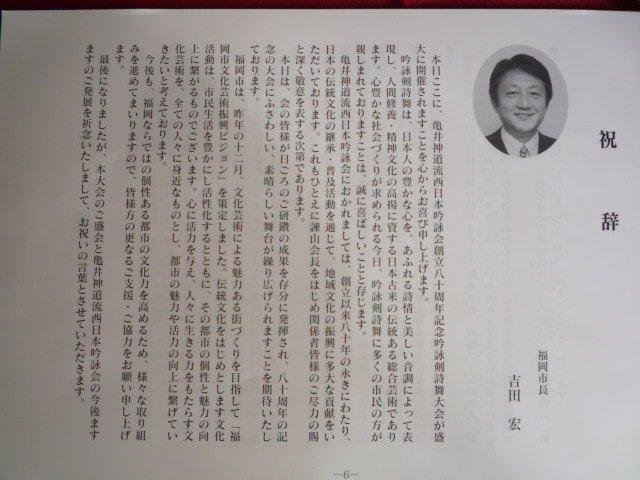 祝辞
福岡市長
吉田 宏
本日ここに、亀井神道流西日本吟詠会創立八十周年記念吟詠剣詩舞大会が盛
大に開催されますことを心からお喜び申し上げます。
吟詠剣詩舞は、日本人の豊かな心を、あふれる詩情と美しい音調によって表
現し、人間修養・精神文化の高揚に資する日本古来の伝統ある総合芸術であり
ます。心豊かな社会づくりが求められる今日、吟詠剣詩舞に多くの市民の方が
親しまれておりますことは、誠に喜ばしいことと存じます。
亀井神道流西日本吟詠会におかれましては、創立以来八十年の永きにわたり、
日本の伝統文化の継承・普及活動を通じて、地域文化の振興に多大な貢献をい
ただいております。これもひとえに諫山会長をはじめ関係者皆様のご尽力の賜
と深く敬意を表する次第であります。
本日は、会の皆様が日ごろのご研鑽の成果を存分に発揮され、八十周年の記
念の大会にふさわしい、素晴らしい舞台が繰り広げられますことを期待いたし
ております。
福岡市は、昨年の十二月、文化芸術による魅力ある街づくりを目指して「福
岡市文化芸術振興ビジョン」を策定しました。伝統文化をはじめとします文化
活動は、市民生活を豊かにし活性化するとともに、その都市の個性と魅力の向
上に繋がるものでございます。心に活力を与え、人々に生きる力をもたらす文
化芸術を、全ての人々に身近なものとし、都市の魅力や活力の向上に繋げてい
きたいと考えております。
今後も、福岡ならではの個性ある都市の文化力を高めるため、様々な取り組
みを進めてまいりますので、皆様方の更なるご支援・ご協力をお願い申し上げ
ます。
最後になりましたが、本大会のご盛会と亀井神道流西日本吟詠会の今後ます
ますのご発展を祈念いたしまして、お祝いの言葉とさせていただきます。
—6—